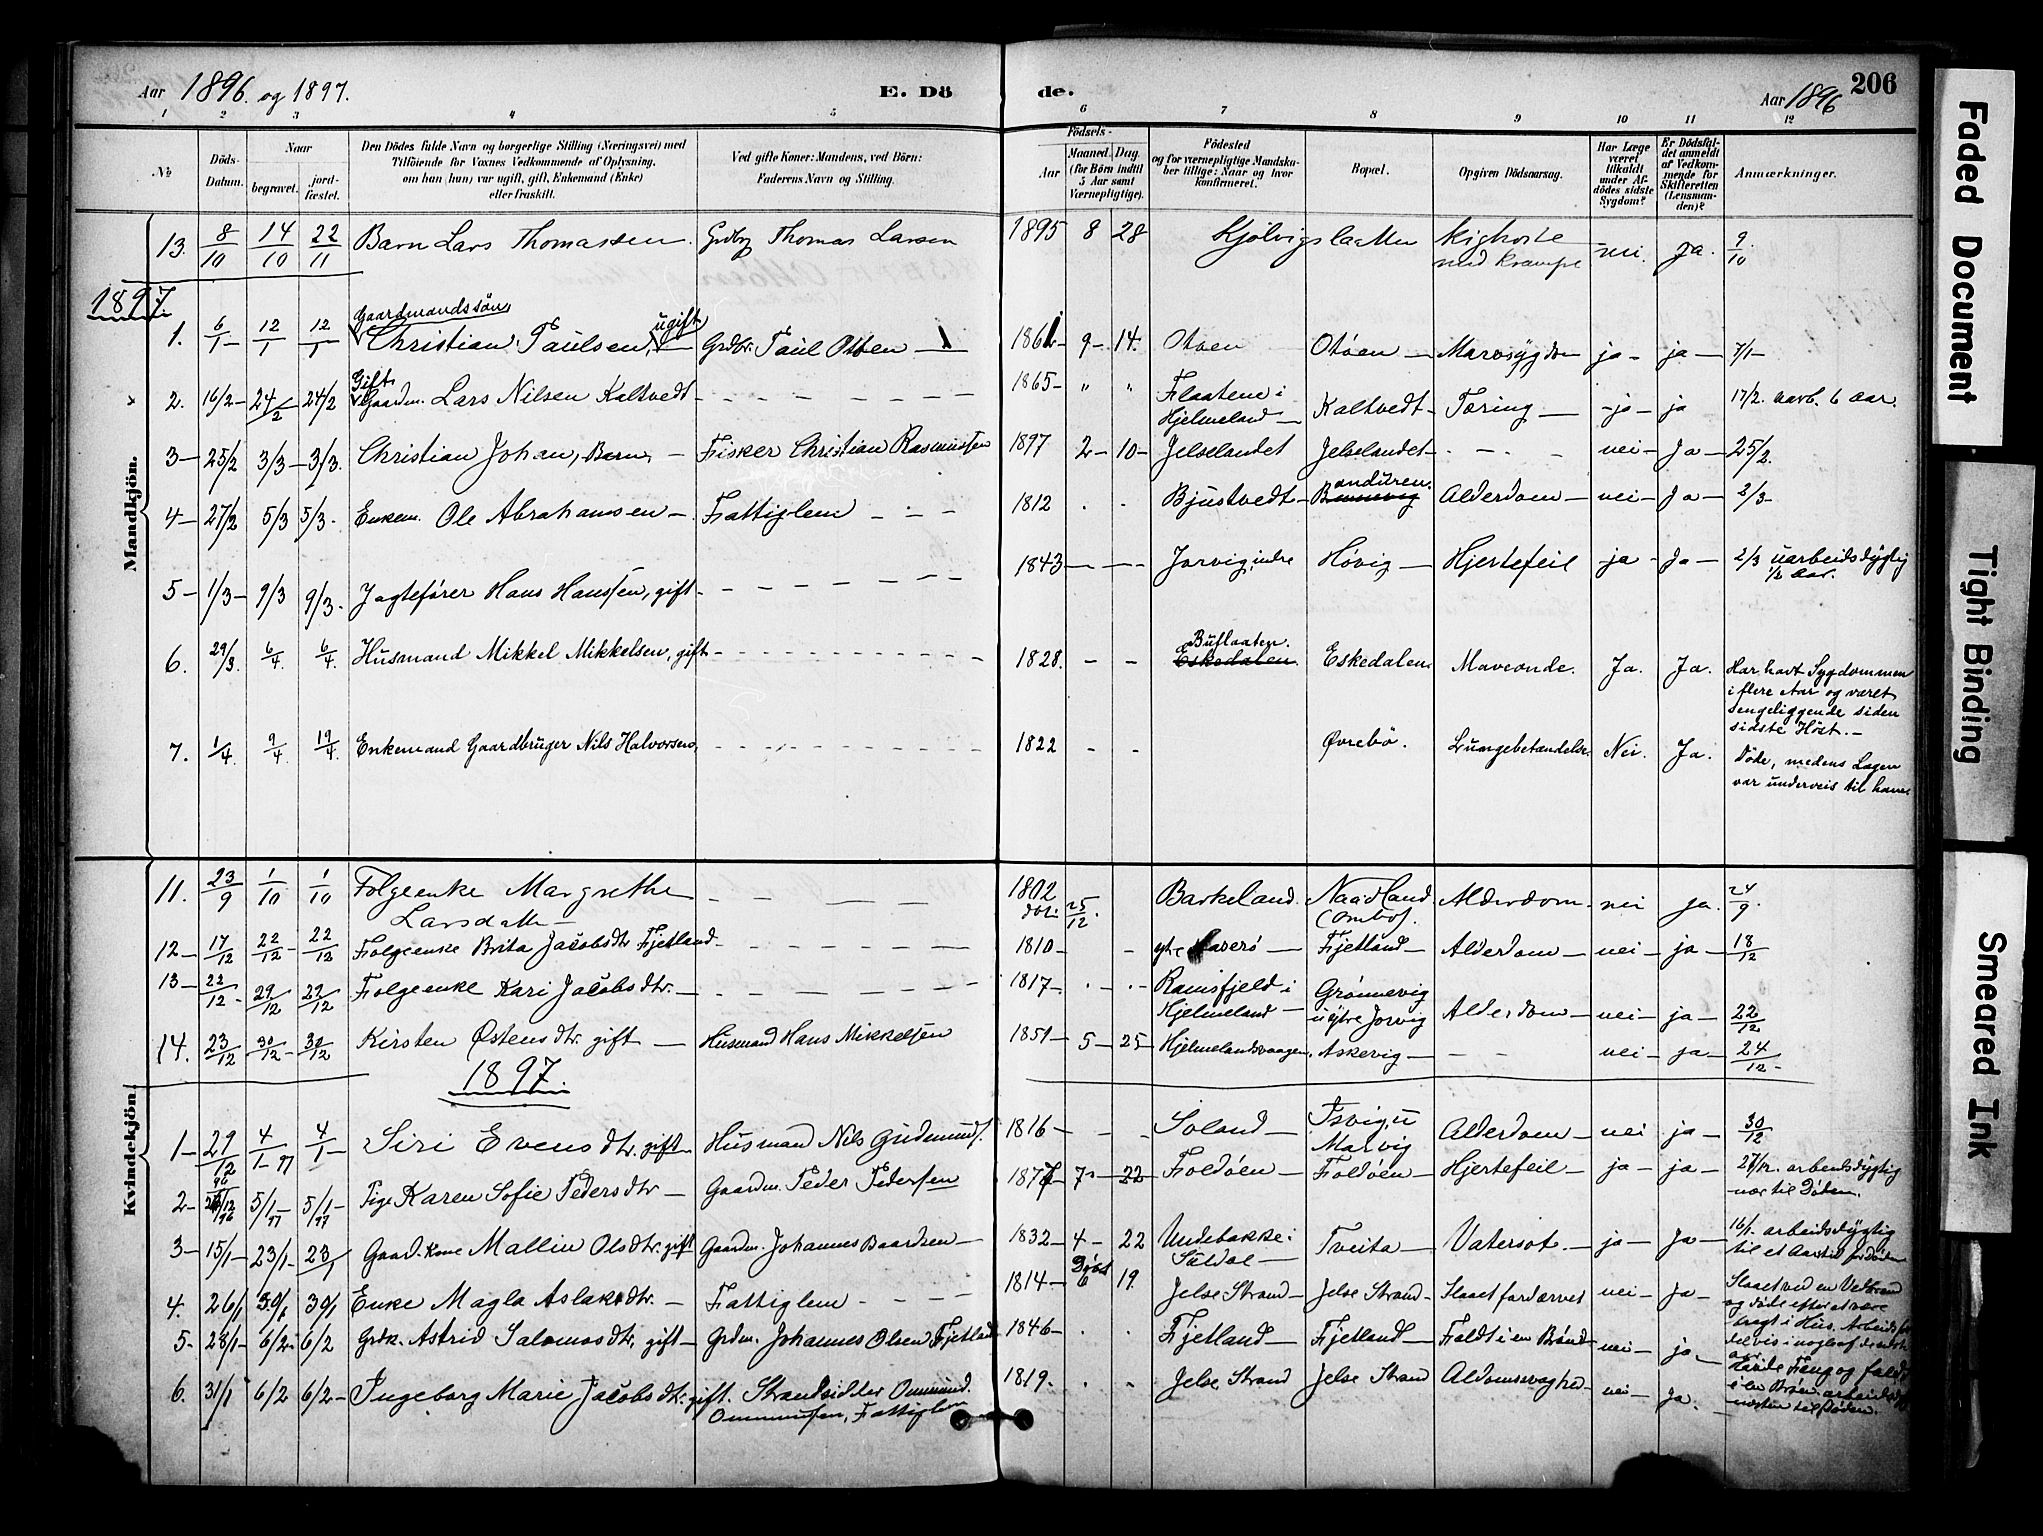 Aar 1896. og 1897.
E. Dö
de.
Aar 1896
206
1 2 3 4 5 6 7 8 9 10 11 12
№
Döds-Datum.
Naar
begravet.
jord-fæstet.
Den Dödes fulde Navn og borgerlige Stilling (Næringsvei) med
Tilföiende for Voxnes Vedkommende af Oplysning,
om han (hun) var ugift, gift, Enkemand (Enke)
eller fraskilt.
Ved gifte Koner: Mandens, ved Börn:
Faderens Navn og Stilling.
Födsels-
Aar
Maaned. Dag.
(for Börn indtil
5 Aar samt
Værnepligtige).
Födested
og for værnepligtige Mandska-
ber tillige: Naar og hvor
konfirmeret.
Bopæl.
Opgiven Dödsaarsag.
Har Læge
været
tilkaldt
under Af-
dödes sidste
Sygdom?
Er Dödsfal-
det anmeldt
af Vedkom-
mende for
Skifteretten
(Lensman-
den)?
Anmærkninger.
Mandkjön.
13. 8/10 14/10 22/11 Barn Lars Thomassen. Grdbr Thomas Larsen 1895 8 28 Kjölvigslatten Kighoste med Krampe nei. Ja. 9/10
1897.
1. 6/1 12/1 12/1 Gaardmandssön Christian Paulsen, ugift Grdbr. Paul Olsen 1861 9 14. Otoen Otöen Marvsygdom ja ja 7/1
2. 16/2 24/2 24/2 Gift Gaardm. Lars Nilsen Kaltvedt 1865 " " Flaatene i Hjelmeland Kaltvedt Tæring ja ja 17/2. aarb. 6 Aar.
3 25/2 3/3 3/3. Christian Johan, Barn, Fisker Christian Rasmussen 1897 2 10 Jelselandet Jelselandet nei Ja 25/2.
4 27/2 5/3 5/3. Enkem. Ole Abrahamsen Fattiglem 1812 Bjustvedt Alderdom nei Ja 2/3
5 1/3 9/3 9/3. Jagtefører Hans Hanssen, gift 1843 Jorvig, indre Høvig Hjertefeil ja Ja 2/3 uarbeidsdygtig 1/2 Aar.
6. 29/3. 6/4 6/4 Husmand Mikkel Mikkelsen, gift 1828. Buflaaten. Eskedalen. Eskedalen Maveonde. Ja. Ja. Har havt Sygdommen
i flere Aar og været
sengeliggende siden
sidste Høst.
7. 1/4 9/4 19/4 Enkemand Gaardbruger Nils Halvorsen, 1822 Øvrebö. Lungebetændelse Nei. Ja. Døde, medens Lægen
var underveis til ham.
Kvindekjön.
11. 23/9 1/10 1/10 Folgeenke Margrethe Larsdatter 1802 25/12. Barkeland. Naadland (Ombo). Alderdom nei ja. 24/9.
12 17/12 22/12 22/12 Folgeenke Brita Jacobsdtr Fjetland 1810 Fjetland Alderdom nei ja 18/12
13 22/12 29/12 29/12 Folgeenke Kari Jacobsdtr. 1817 Ramsfjeld i Hjelmeland Grønnevig u ytre Jorvig Alderdom nei ja 22/12
14. 23/12 30/12 30/12 Kirsten Østensdtr. gift Husmand Hans Mikkelsen 1851 5 25 Hjelmelandsvaagen Askevig nei ja 24/12
1897.
1 29/12 96 4/1 97 4/1 Siri Evensdtr. gift Husmand Nils Gudmunds. 1816 Soland Marvig Alderdom nei ja 30/12
2 5/1 97 5/1 97 Pige Karen Sofie Pedersdtr Gaardm. Peder Pedersen 1877 7 22 Foldöen Foldöen Hjertefeil ja ja 27/12. arbeidsdygtig
nær til Döden.
3 15/1 23/1 23/1 Gaard.kone Mallin Olsdtr. gift Gaardm. Johannes Baardsen 1832 4 22 Undebakke i Suldal Tveita Vatersot. ja Ja 16/1. arbeidsdygtig
til et Aarstid før döden
4. 26/1 30/1 30/1 Enke Magla Aslaksdtr. Fattiglem 1814 Döbt 6 19 Jelse Strand Jelse Strand Slaaet fordærvet nei Ja Slaaet ved en
og døde efter at være
bragt i Hus.
5. 28/1 6/2 6/2 Grdk. Astrid Salomosdtr, gift Grdm. Johannes Olsen Fjetland 1846 Fjetland Fjetland Faldt i en Brønd nei ja
6. 31/1 6/2 6/2 Ingeborg Marie Jacobsdtr. gift. Strandsidder Ommund Ommundsen, Fattiglem 1819. Jelse Strand Jelse Strand nei Ja.
næsten til Döden.
Faded Document
Tight Binding
Smeared Ink